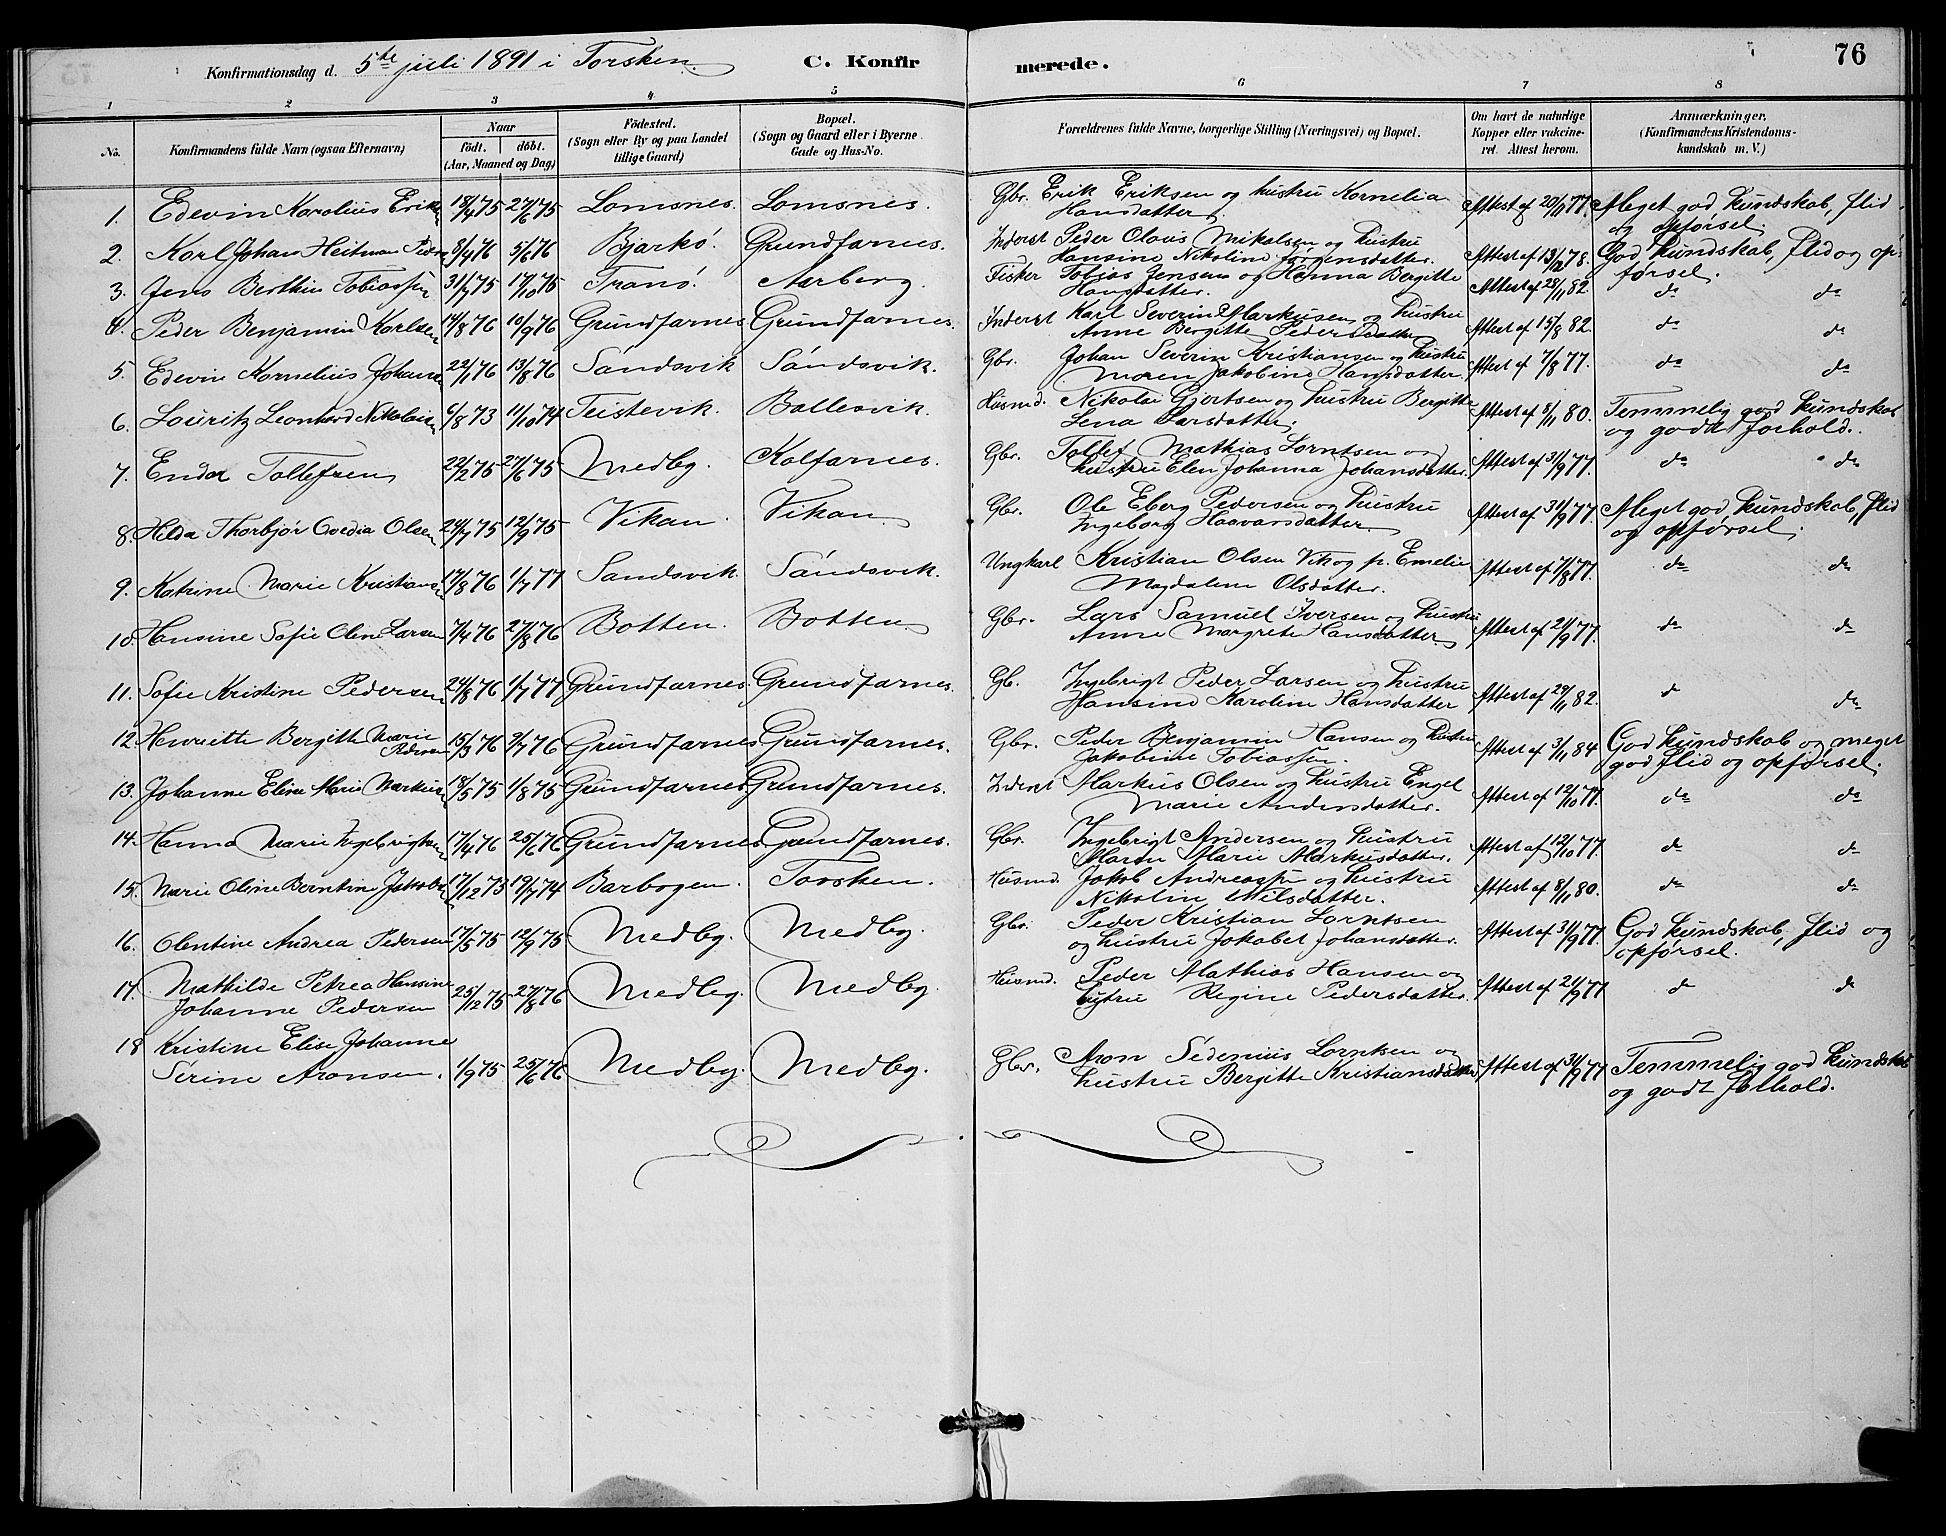 76
Konfirmationsdag d. 5te juli 1891 i Torsken. C. Konfirmerede.
1 2 3 4 5 6 7 8
No. Konfirmandens fulde Navn (ogsaa Efternavn) Naar født. døbt. (Aar, Maaned og Dag) Födested. (Sogn eller By og paa Landet tillige Gaard) Bopæl. (Sogn og Gaard eller i Byerne Gade og Hus-No. Forældrenes fulde Navne, borgerlige Stilling (Næringsvei) og Bopæl. Om havt de naturlige Kopper eller vakcineret. Attest herom. Anmærkninger. (Konfirmandens Kristendomskundskab m. V.)
1. Edevin Karolius Erik 18/4 75 27/6 75 Lomsnes. Lomsnes. Gbr. Erik Eriksen og hustru Kornelia Attest af 20/11 77. Meget god kundskab, flid
Hansdatter. og opførsel.
2. Karl Johan Heitman Peder 8/4 76 5/6 76 Bjarkö. Grundfarnes. Inderst Peder Olaus Mikalsen og hustru Attest af 13/12 78. God kundskab, flid og op-
Hansine Nikoline Jörgensdatter. førsel.
3. Jens Berthin Tobiassen 31/7 75 17/10 75 Tranö. Aarberg. Fisker Tobias Jensen og Hanna Bergitte Attest af 28/11 82. do do
Hansdatter.
4. Peder Benjamin Karlsen 14/8 76 10/9 76 Grundfarnes Grundfarnes. Inderst Karl Severin Markusen og hustru Attest af 15/8 82. do do
Anne Bergitte Pedersdatter
5. Edevin Kornelius Johans 22/1 76 13/8 76 Sandsvik Sandsvik. Gbr. Johan Severin Kristiansen og hustru Attest af 7/8 77. do do
Maren Jakobine Hansdatter.
6. Louritz Leonhard Nikolaisen 6/8 73 11/10 74 Teistevik. Ballesvik. Husmd. Nikolai Gjertsen og hustru Bergitte Attest af 8/11 80. Temmelig god kundskab
Lena Larsdatter. og godt forhold.
7. Endor Tollefsen 22/2 75 27/6 75 Medby. Kalfarnes. Gbr. Tollef Mathias Lorntsen og Attest af 31/9 77. do do
hustru Elen Johanna Johansdatter.
8. Hilda Thorbjör Ovedia Olsen 24/7 75 12/9 75 Vikan. Vikan. Gbr. Ole Eberg Pedersen og hustru Attest af 31/9 77. Meget god kundskab, flid
Ingeborg Haavarsdatter. og opførsel.
9. Katrine Marie Kristians 17/8 76 1/7 77 Sandsvik. Sandsvik. Ungkarl Kristian Olsen Vik og p. Emelie Attest af 7/8 77. do do
Magdalene Olsdatter.
10. Hansine Sofie Oline Larsen 7/4 76 27/8 76 Botten. Botten. Gbr. Lars Samuel Iversen og hustru Attest af 21/9 77. do do
Anne Margrete Hansdatter.
11. Sofie Kristine Pedersen 24/8 76 1/7 77 Grundfarnes. Grundfarnes. Gb. Ingebrigt Peder Larsen og hustru Attest af 29/11 82. do do
Hansine Karoline Hansdatter
12 Henriette Bergitte Marie Pedersen 15/3 76 2/7 76 Grundfarnes Grundfarnes. Gbr. Peder Benjamin Hansen og hustru Attest af 3/11 84 God kundskab og meget
Jakobine Tobiassen. god flid og opførsel.
13. Johanne Eline Marie Markus 18/5 75 1/8 75 Grundfarnes Grundfarnes. Inderst Markus Olsen og hustru Engel Attest af 12/10 77. do do
Marie Andersdatter.
14. Hanna Marie Ingebrigtsen 17/4 76 25/6 76 Grundfarnes Grundfarnes. Gbr. Ingebrigt Andersen og hustru Attest af 12/10 77. do do
Maren Marie Markusdatter.
15. Marie Oline Berntine Jakobs 17/12 73 19/7 74 Barbogen. Torsken. Husmd. Jakob Andreassen og hustru Attest af 8/11 80. do do
Nikoline Nilsdatter.
16. Olentine Andrea Pedersen 17/5 75 12/9 75 Medby. Medby. Gbr. Peder Kristian Lorntsen Attest af 31/9 77. God kundskab, flid og
og hustru Jakobet Johansdatter. opførsel.
17. Mathilde Petrea Hansine 25/12 75 27/8 76 Medby. Medby. Husmd. Peder Mathias Hansen og Attest af 21/9 77 do do
Johanne Pedersen hustru Regine Pedersdatter.
18 Kristine Elise Johanne 1/9 75 25/6 76 Medby. Medby. Gbr. Aron Sedenius Lorntsen og Attest af 31/9 77 Temmelig god kundskab
Serine Aronsen. hustru Bergitte Kristiansdatter og godt forhold.